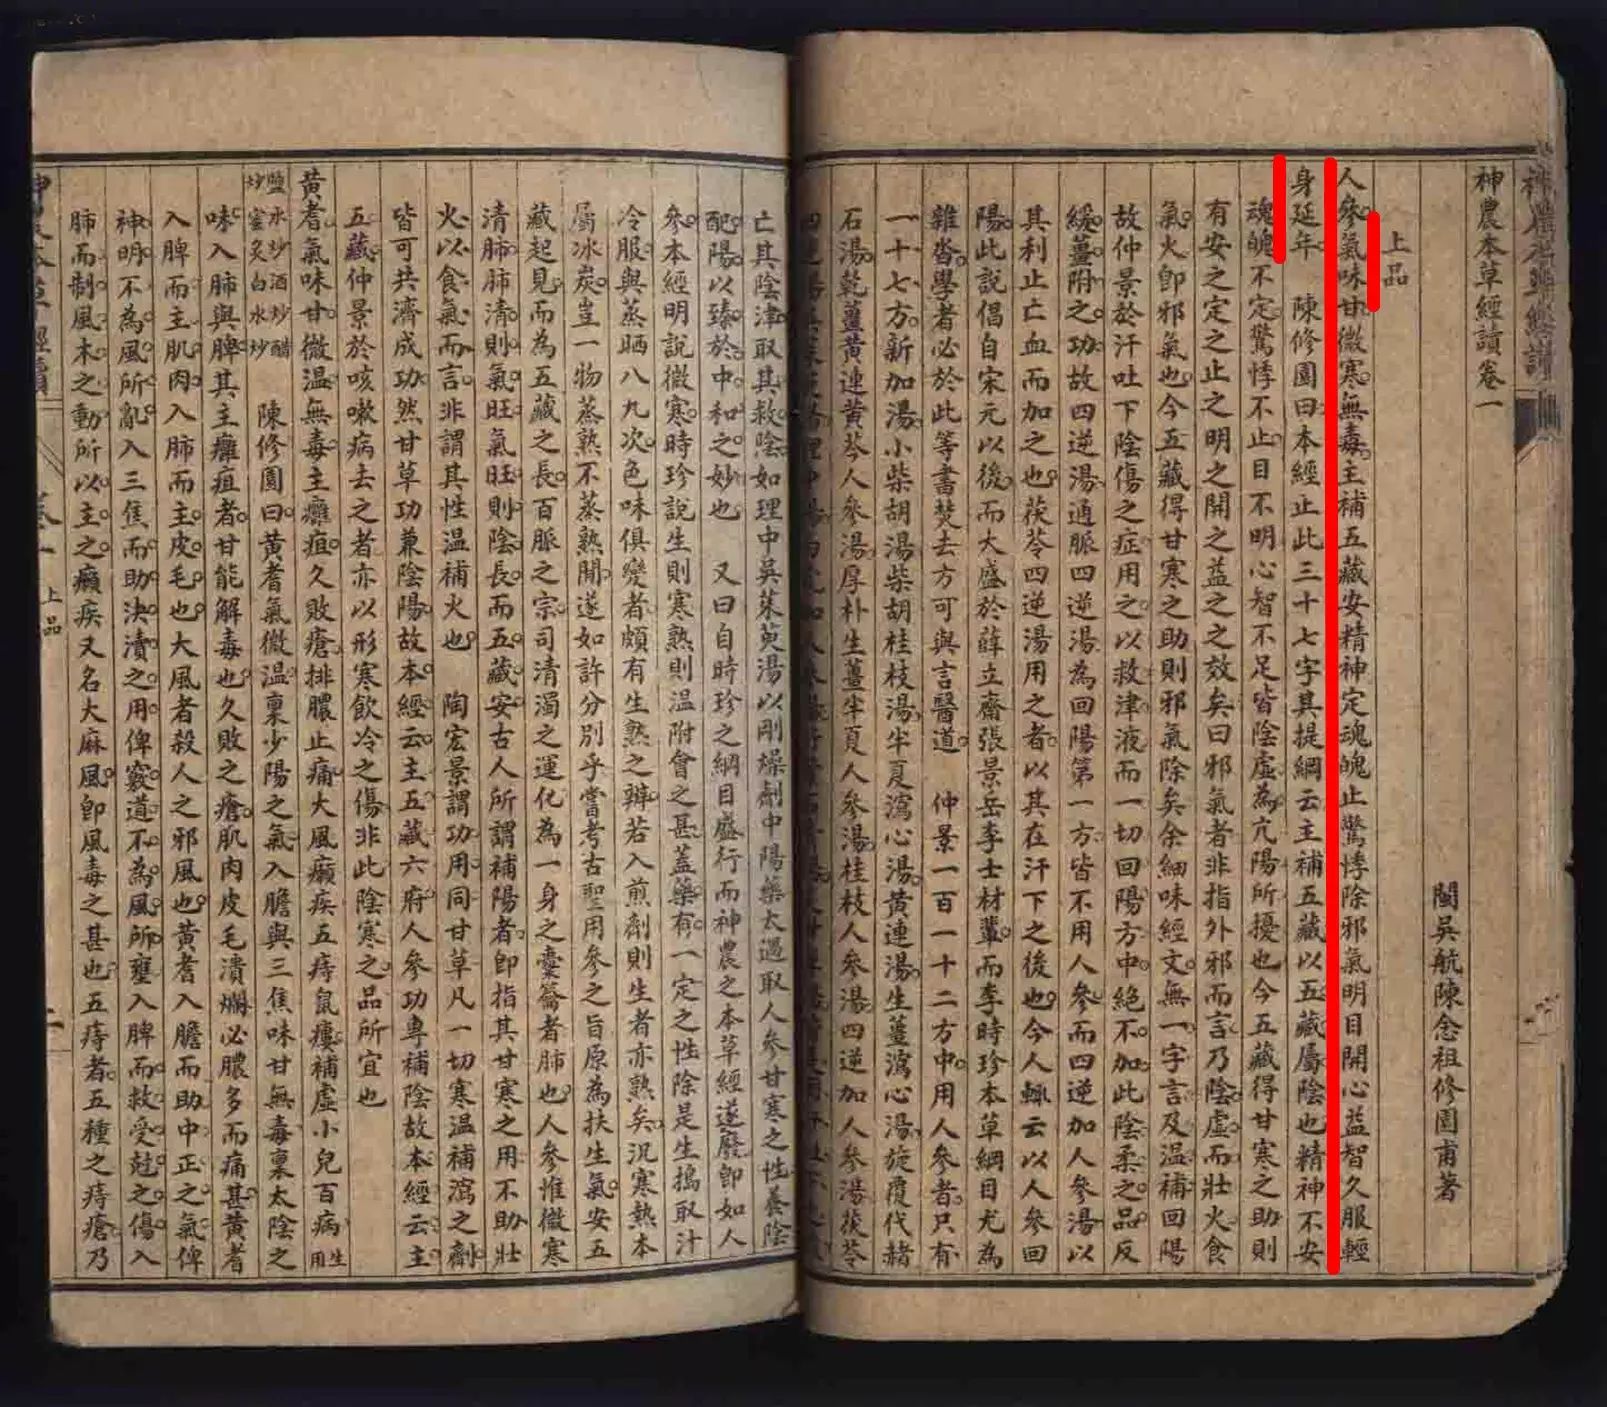 神農本草經讀
神農本草經讀卷一
閩吳航陳念祖修園甫著
上品
人參氣味甘微寒無毒主補五藏安精神定魂魄止驚悸除邪氣明目開心益智久服輕
身延年　陳修園曰本經止此三十七字其提綱云主補五藏以五藏屬陰也精神不安
魂魄不定驚悸不止目不明心智不足皆陰虛為亢陽所擾也今五藏得甘寒之助則
有安之定之止之明之開之益之之效矣曰邪氣者非指外邪而言乃陰虛而壯火食
氣火卽邪氣也今五藏得甘寒之助則邪氣除矣余細味經文無一字言及温補回陽
故仲景於汗吐下陰傷之症用之以救津液而一切回陽方中絕不加此陰柔之品反
緩薑附之功故四逆湯通脈四逆湯為回陽第一方皆不用人參而四逆加人參湯以
其利止亡血而加之也茯苓四逆湯用之者以其在汗下之後也今人輒云以人參回
陽此說倡自宋元以後而大盛於薛立齋張景岳李士材輩而李時珍本草綱目尤為
雜沓學者必於此等書焚去方可與言醫道　仲景一百一十二方中用人參者只有
一十七方新加湯小柴胡湯柴胡桂枝湯半夏瀉心湯黃連湯生薑瀉心湯旋覆代赭
石湯乾薑黃連黃芩人參湯厚朴生薑半夏人參湯桂枝人參湯四逆加人參湯茯苓
四逆湯吳茱萸湯理中湯
亡其陰津取其救陰如理中吳茱萸湯以剛燥劑中陽藥太過取人參甘寒之性養陰
配陽以臻於中和之妙也　又曰自時珍之綱目盛行而神農之本草經遂廢卽如人
參本經明說微寒時珍說生則寒熟則温附會之甚蓋藥有一定之性除是生搗取汁
冷服與蒸晒八九次色味俱變者頗有生熟之辨若入煎劑則生者亦熟矣況寒熱本
屬冰炭豈一物蒸熟不蒸熟間遂如許分別乎當考古聖用參之旨原為扶生氣安五
藏起見而為五藏之長百脈之宗司清濁之運化為一身之橐籥者肺也人參惟微寒
清肺肺清則氣旺氣旺則陰長而五藏安古人所謂補陽者卽指其甘寒之用不助壯
火以食氣而言非謂其性温補火也　陶宏景謂功用同甘草凡一切寒温補瀉之劑
皆可共濟成功然甘草功兼陰陽故本經云主五藏六府人參功專補陰故本經云主
五藏仲景於咳嗽病去之者亦以形寒飲冷之傷非此陰寒之品所宜也
黃耆氣味甘微温無毒主癰疽久敗瘡排膿止痛大風癩疾五痔鼠瘻補虛小兒百病生用
鹽水炒酒炒醋炒蜜炙白水炒　陳修園曰黃耆氣微温稟少陽之氣入膽與三焦味甘無毒稟太陰之
味入肺與脾其主癰疽者甘能解毒也久敗之瘡肌肉皮毛潰爛必膿多而痛甚黃耆
入脾而主肌肉入肺而主皮毛也大風者殺人之邪風也黃耆入膽而助中正之氣俾
神明不為風所亂入三焦而助決瀆之用俾竅道不為風所壅入脾而救受尅之傷入
肺而制風木之動所以主之癩疾又名大麻風卽風毒之甚也五痔者五種之痔瘡乃
卷一　上品
二